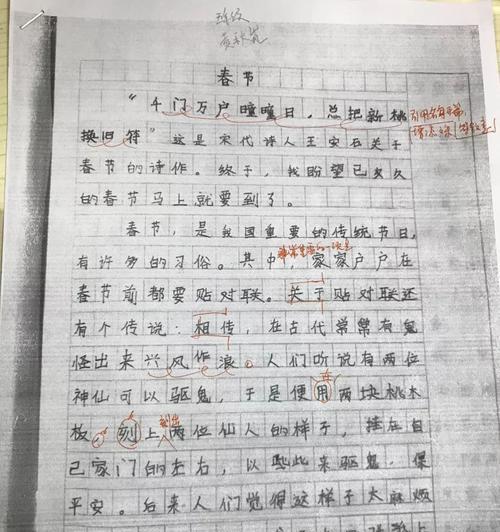 春节
“千门万户曈曈日，总把新桃
换旧符”这是宋代诗人王安石关于
春节的诗作。终于，我盼望已久久
的春节马上就要到了。
春节，是我国重要的传统节日，
有许多的习俗。其中，家家户户在
春节前都要贴对联。关于贴对联还
有个传说：相传，在古代常常有鬼
怪出来兴风作浪。人们听说有两位
神仙可以驱鬼，于是便用两块桃木
板，刻上两位仙人的样子，挂在自
己家门的左右，以此来驱鬼、保
平安。后来人们觉得这样子太麻烦